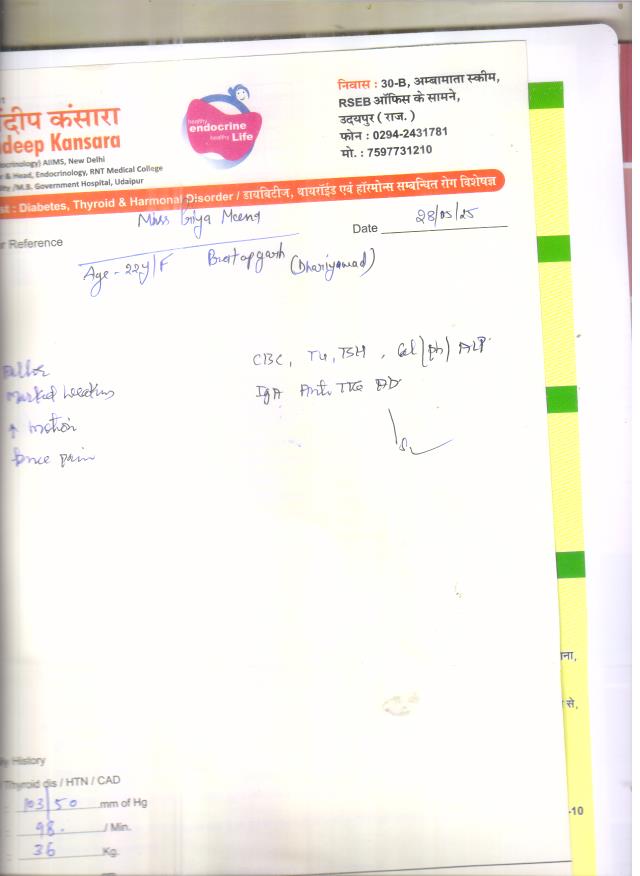 दीप कंसारा
deep Kansara
ocrinology) AIIMS, New Delhi
r & Head, Endocrinology, RNT Medical College
lity /M.B. Government Hospital, Udaipur
healthy
endocrine
healthy Life
निवास : 30-B, अम्बामाता स्कीम,
RSEB ऑफिस के सामने,
उदयपुर ( राज. )
फोन : 0294-2431781
मो. : 7597731210
st : Diabetes, Thyroid & Harmonal Disorder / डायबिटीज, थायरॉइड एवं हॉरमोन्स सम्बन्धित रोग विशेषज्ञ
Miss Priya Meena
r Reference
Date 28/05/25
Age - 22y/F Pratapgarh (Dhariyawad)
CBC, T4, TSH, Cal (ph) ALP
IgA Anti TTG AB
Pallor
Marked weakness
↑ motion
bone pain
ना,
से,
-10
ly History
Thyroid dis / HTN / CAD
: 103/50 mm of Hg
: 98. / Min.
: 36 Kg.